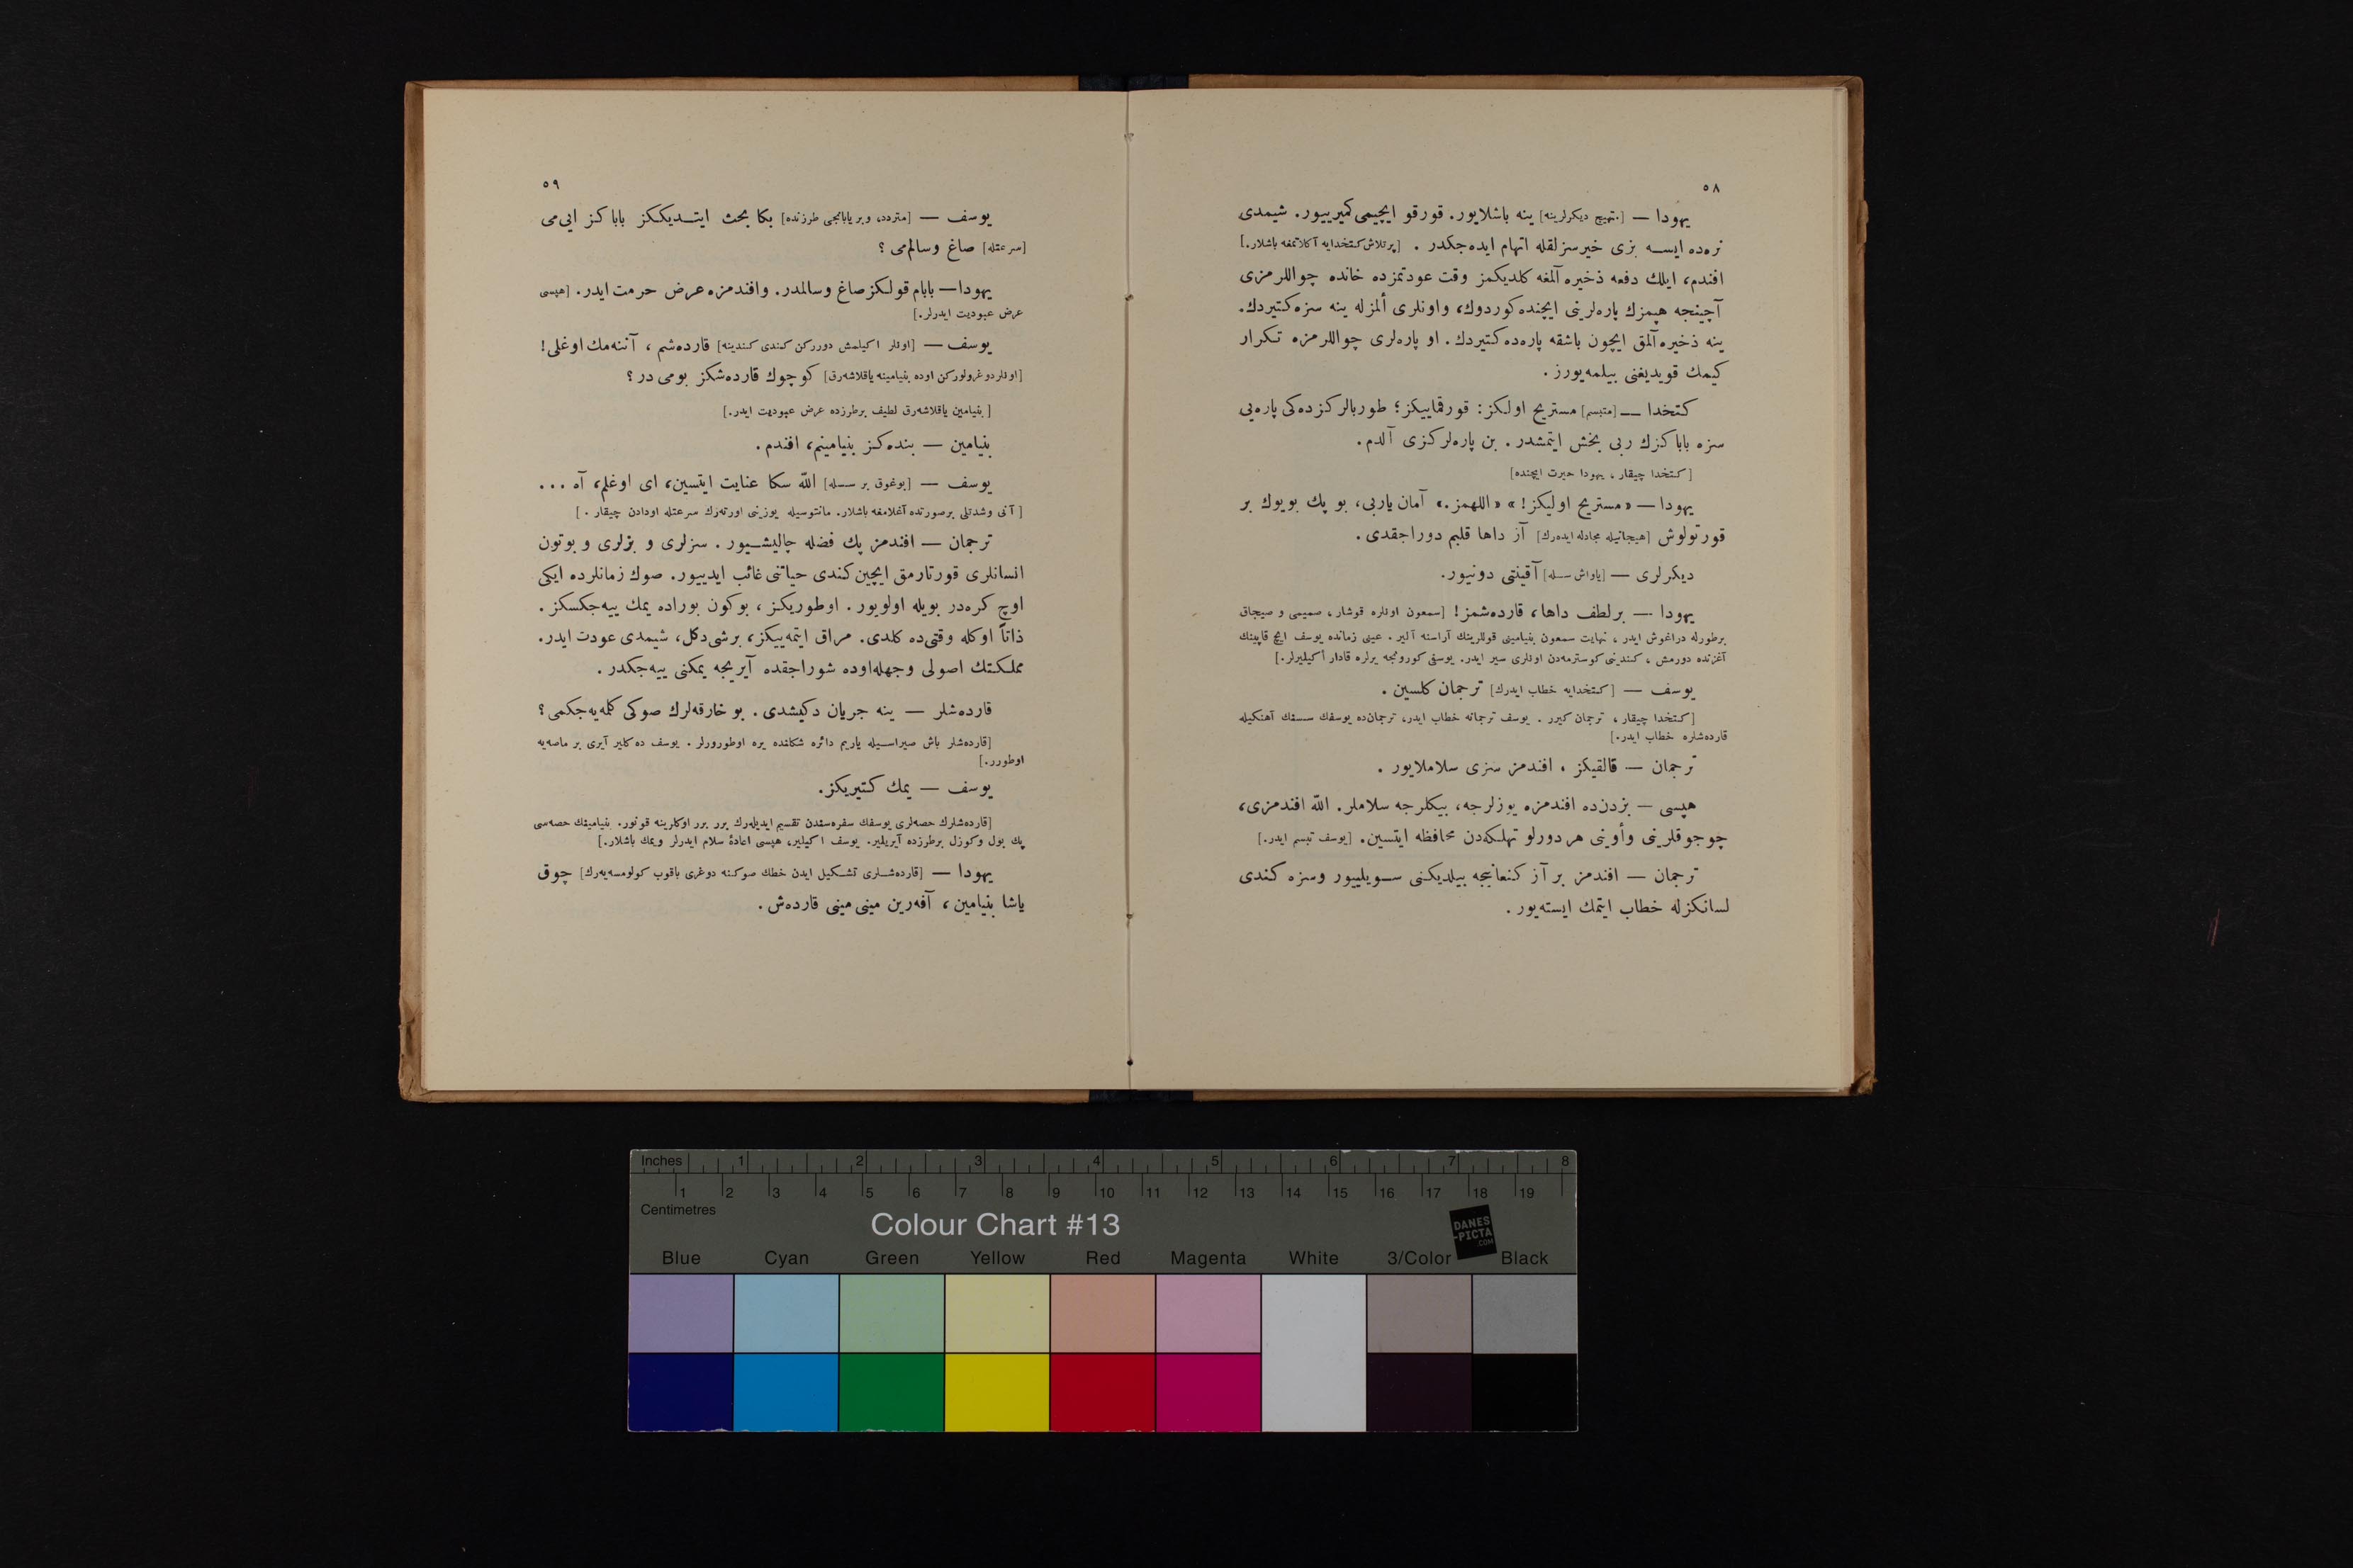 ٥٨
يهودا — [متهيج ديكرلرينه] ينه باشلايور. قورقو ايچيمى كميرييور. شيمدى
نره‌ده ايسه بزى خيرسزلقله اتهام ايده‌جكدر . [پرتلاش كتخدايه آكلاتمغه باشلار.]
افندم، ايلك دفعه ذخيره آلمغه كلديكمز وقت عودتمزده خانده چواللرمزى
آچينجه هپمزك پاره‌لرينى ايچنده كوردوك، واونلرى ألمزله ينه سزه كتيردك.
ينه ذخيره آلمق ايچون باشقه پاره‌ده كتيردك . او پاره‌لرى چواللرمزه تكرار
كيمك قويديغنى بيلمه‌يورز .
كتخدا — [متبسم] مستريح اولكز : قورقماييكز؛ طوربالركزده‌كى پاره‌يى
سزه باباكزك ربى بخش ايتمشدر . بن پاره‌لركزى آلدم .
[كتخدا چيقار ، يهودا حيرت ايچنده]
يهودا — «مستريح اوليكز!» «اللهمز.» آمان ياربى، بو پك بويوك بر
قورتولوش [هيجانيله مجادله ايده‌رك] آز داها قلبم دوراجقدى .
ديكرلرى — [ياواش سسله] آقينتى دونيور.
يهودا — بر لطف داها، قارده‌شمز! [سمعون اونلره قوشار ، صميمى و صيجاق
برطورله دراغوش ايدر ، نهايت سمعون بنيامينى قوللرينك آراسنه آلير . عينى زمانده يوسف ايچ قاپينك
آغزنده دورمش ، كندينى كوسترمه‌دن اونلرى سير ايدر. يوسفى كورونجه يرلره قادار أكيليرلر.]
يوسف — [كتخدايه خطاب ايدرك] ترجمان كلسين .
[كتخدا چيقار ، ترجمان كيرر . يوسف ترجمانه خطاب ايدر، ترجمان‌ده يوسفك سسنك آهنكيله
قارده‌شلره خطاب ايدر.]
ترجمان — قالقيكز ، افندمز سزى سلاملايور .
هپسى — بزدن‌ده افندمزه يوزلرجه، بيكلرجه سلاملر. اللّه افندمزى،
چوجوقلرينى وأوينى هر دورلو تهلكه‌دن محافظه ايتسين. [يوسف تبسم ايدر.]
ترجمان — افندمز بر آز كنعانيجه بيلديكنى سويلييور وسزه كندى
لسانكزله خطاب ايتمك ايسته‌يور .
٥٩
يوسف — [متردد، و بر يابانجى طرزنده] بكا بحث ايتديككز باباكز ايى‌مى
[سرعتله] صاغ وسالم‌مى ؟
يهودا — بابام قولكز صاغ وسالمدر. وافندمزه عرض حرمت ايدر. [هپسى
عرض عبوديت ايدرلر.]
يوسف — [اونلر اكيلمش دورركن كندى كندينه] قارده‌شم ، آننه‌مك اوغلى!
[اونلر دوغرولوركن اوده بنيامينه ياقلاشه‌رق] كوچوك قارده‌شكز بومى در ؟
[بنيامين ياقلاشه‌رق لطيف برطرزده عرض عبوديت ايدر.]
بنيامين — بنده‌كز بنيامينم، افندم .
يوسف — [بوغوق بر سسله] اللّه سكا عنايت ايتسين، اى اوغلم، آه ...
[آنى وشدتلى برصورتده آغلامغه باشلار. مانتوسيله يوزينى اورته‌رك سرعتله اودادن چيقار .]
ترجمان — افندمز پك فضله چاليشيور . سزلرى و بزلرى و بوتون
انسانلرى قورتارمق ايچين كندى حياتنى غائب ايدييور. صوك زمانلرده ايكى
اوچ كره‌در بويله اولويور . اوطوريكز ، بوكون بوراده يمك ييه‌جكسكز .
ذاتاً اوكله وقتى‌ده كلدى. مراق ايتمه‌ييكز، برشى‌دكل، شيمدى عودت ايدر.
مملكتك اصولى وجهله‌اوده شوراجقده آيريجه يمكنى ييه‌جكدر .
قارده‌شلر — ينه جريان دكيشدى . بو خارقه‌لرك صوكى كلمه‌يه‌جكمى ؟
[قارده‌شلر باش صيراسيله ياريم دائره شكلنده يره اوطورورلر . يوسف ده كلير آيرى بر ماصه‌يه
اوطورر.]
يوسف — يمك كتيريكز.
[قارده‌شلرك حصه‌لرى يوسفك سفره‌سندن تقسيم ايديله‌رك برر برر اوكلرينه قونور. بنيامينك حصه‌سى
پك بول وكوزل برطرزده آيريلير. يوسف اكيلير، هپسى اعادۀ سلام ايدرلر ويمك باشلار.]
يهودا — [قارده‌شلرى تشكيل ايدن خطك صوكنه دوغرى باقوب كولومسه‌يه‌رك] چوق
ياشا بنيامين ، آفه‌رين مينى مينى قارده‌ش .
Inches 1 2 3 4 5 6 7 8
1 2 3 4 5 6 7 8 9 10 11 12 13 14 15 16 17 18 19
Centimetres
Colour Chart #13
DANES
-PICTA
.COM
Blue Cyan Green Yellow Red Magenta White 3/Color Black